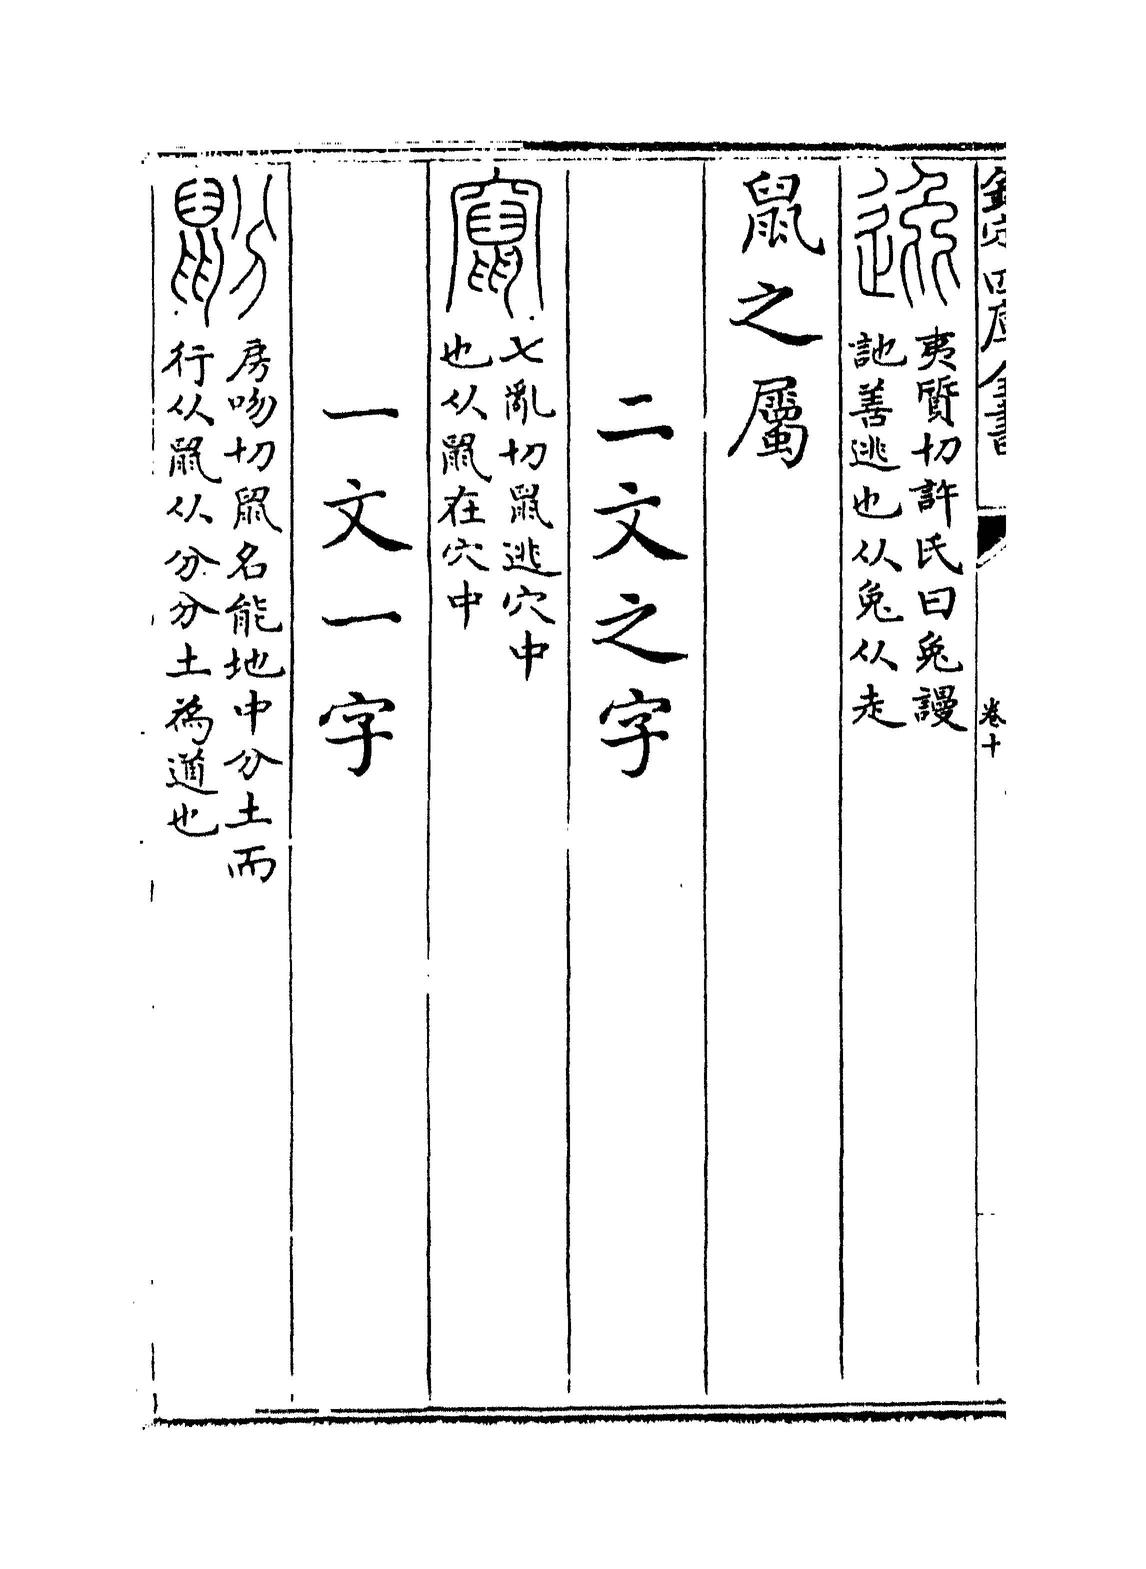 欽定四庫全書
卷十
逸
夷質切許氏曰兔謾
訑善逃也从兔从辵
鼠之屬
二文之字
竄
七亂切鼠逃穴中
也从鼠在穴中
一文一字
鼢
房吻切鼠名能地中分土而
行从鼠从分分土為道也